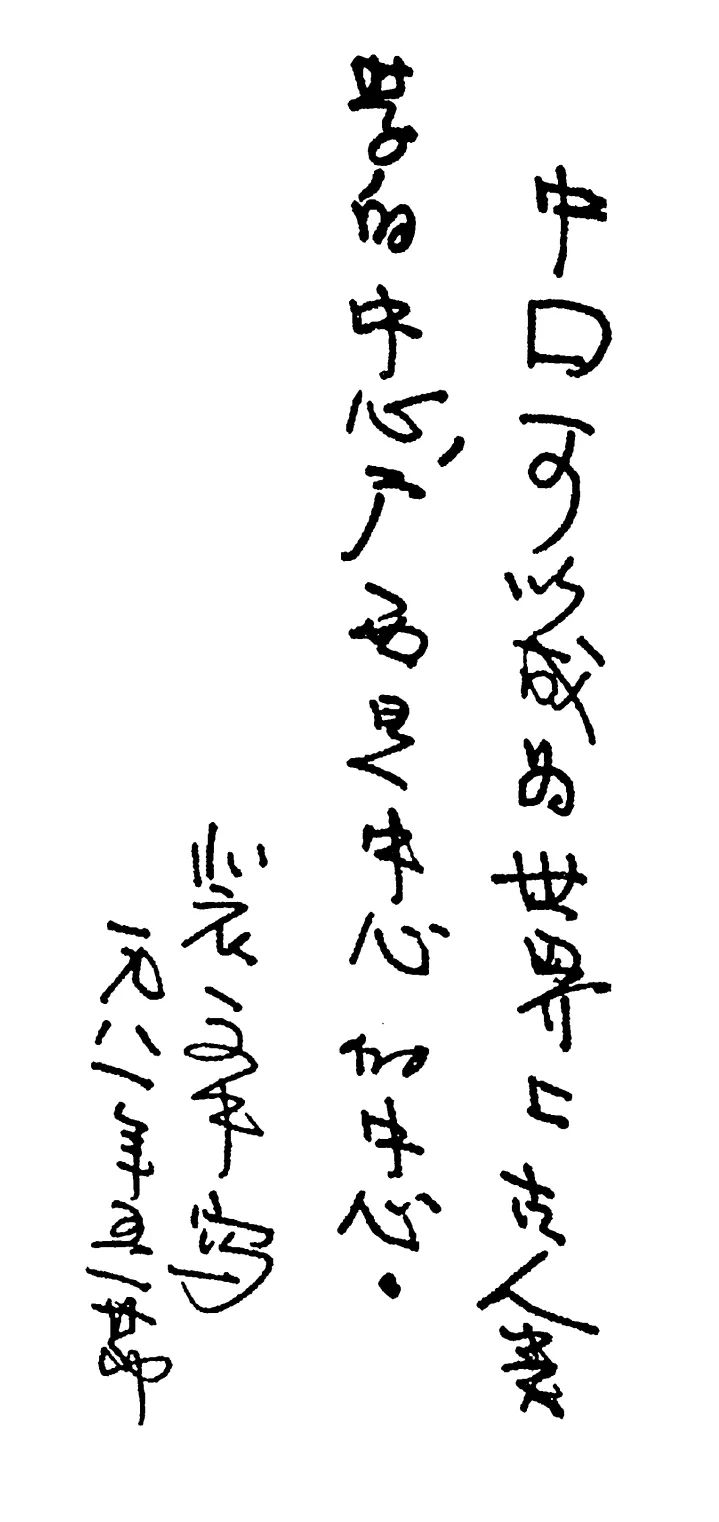 中国可以成为世界上古人类
学的中心，广西是中心的中心。
裴文中写
一九八一年五一节